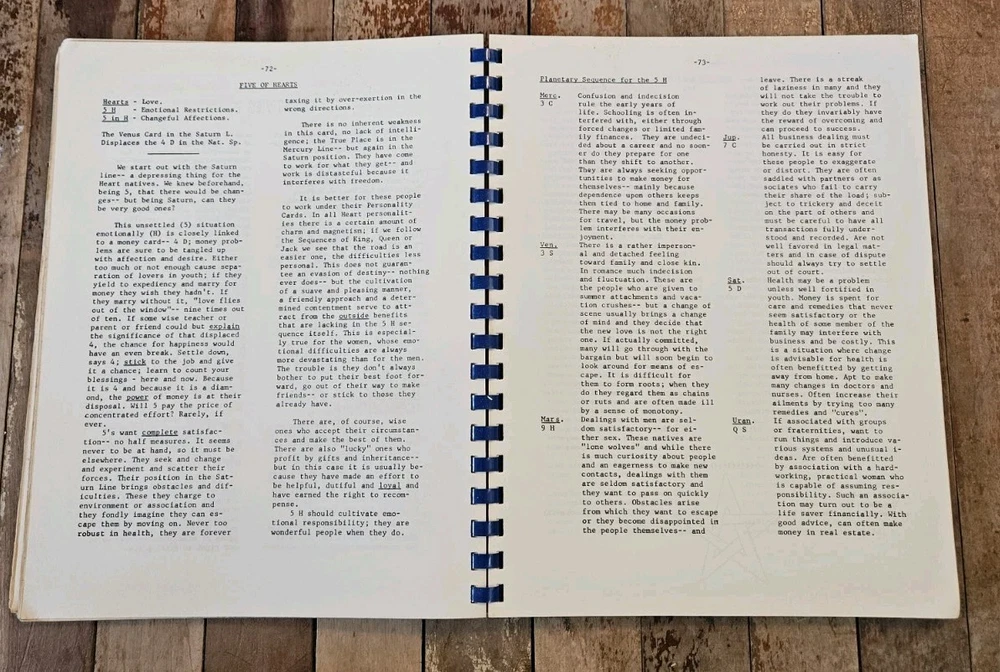 -72-
FIVE OF HEARTS
Hearts - Love.
5 H - Emotional Restrictions.
5 in H - Changeful Affections.
The Venus Card in the Saturn L.
Displaces the 4 D in the Nat. Sp.
We start out with the Saturn
line-- a depressing thing for the
Heart natives. We knew beforehand,
being 5, that there would be chan-
ges-- but being Saturn, can they
be very good ones?
This unsettled (5) situation
emotionally (H) is closely linked
to a money card-- 4 D; money prob-
lems are sure to be tangled up
with affection and desire. Either
too much or not enough cause sepa-
ration of lovers in youth; if they
yield to expediency and marry for
money they wish they hadn't. If
they marry without it, "love flies
out of the window"-- nine times out
of ten. If some wise teacher or
parent or friend could but explain
the significance of that displaced
4, the chance for happiness would
have an even break. Settle down,
says 4; stick to the job and give
it a chance; learn to count your
blessings - here and now. Because
it is 4 and because it is a diam-
ond, the power of money is at their
disposal. Will 5 pay the price of
concentrated effort? Rarely, if
ever.
5's want complete satisfac-
tion-- no half measures. It seems
never to be at hand, so it must be
elsewhere. They seek and change
and experiment and scatter their
forces. Their position in the Sat-
urn Line brings obstacles and dif-
ficulties. These they charge to
environment or association and
they fondly imagine they can es-
cape them by moving on. Never too
robust in health, they are forever
taxing it by over-exertion in the
wrong directions.
There is no inherent weakness
in this card, no lack of intelli-
gence; the True Place is in the
Mercury Line-- but again in the
Saturn position. They have come
to work for what they get-- and
work is distasteful because it
interferes with freedom.
It is better for these people
to work under their Personality
Cards. In all Heart personalit-
ies there is a certain amount of
charm and magnetism; if we follow
the Sequences of King, Queen or
Jack we see that the road is an
easier one, the difficulties less
personal. This does not guaran-
tee an evasion of destiny-- nothing
ever does-- but the cultivation
of a suave and pleasing manner,
a friendly approach and a deter-
mined contentment serve to att-
ract from the outside benefits
that are lacking in the 5 H se-
quence itself. This is especial-
ly true for the women, whose emo-
tional difficulties are always
more devastating than for the men.
The trouble is they don't always
bother to put their best foot for-
ward, go out of their way to make
friends-- or stick to those they
already have.
There are, of course, wise
ones who accept their circumstan-
ces and make the best of them.
There are also "lucky" ones who
profit by gifts and inheritance--
but in this case it is usually be-
cause they have made an effort to
be helpful, dutiful and loyal and
have earned the right to recom-
pense.
5 H should cultivate emo-
tional responsibility; they are
wonderful people when they do.
-73-
Planetary Sequence for the 5 H
Merc. Confusion and indecision
3 C rule the early years of
life. Schooling is often in-
terfered with, either through
forced changes or limited fam-
ily finances. They are undeci-
ded about a career and no soon-
er do they prepare for one
than they shift to another.
They are always seeking oppor-
tunities to make money for
themselves-- mainly because
dependence upon others keeps
them tied to home and family.
There may be many occasions
for travel, but the money prob-
lem interferes with their en-
joyment.
Ven. There is a rather imperson-
3 S al and detached feeling
toward family and close kin.
In romance much indecision
and fluctuation. These are
the people who are given to
summer attachments and vaca-
tion crushes-- but a change of
scene usually brings a change
of mind and they decide that
the new love is not the right
one. If actually committed,
many will go through with the
bargain but will soon begin to
look around for means of es-
cape. It is difficult for
them to form roots; when they
do they regard them as chains
or ruts and are often made ill
by a sense of monotony.
Mars. Dealings with men are sel-
9 H dom satisfactory-- for ei-
ther sex. These natives are
"lone wolves" and while there
is much curiosity about people
and an eagerness to make new
contacts, dealings with them
are seldom satisfactory and
they want to pass on quickly
to others. Obstacles arise
from which they want to escape
or they become disappointed in
the people themselves-- and
leave. There is a streak
of laziness in many and they
will not take the trouble to
work out their problems. If
they do they invariably have
the reward of overcoming and
can proceed to success.
Jup. All business dealing must
7 C be carried out in strict
honesty. It is easy for
these people to exaggerate
or distort. They are often
saddled with partners or as
sociates who fail to carry
their share of the load; sub-
ject to trickery and deceit
on the part of others and
must be careful to have all
transactions fully under-
stood and recorded. Are not
well favored in legal mat-
ters and in case of dispute
should always try to settle
out of court.
Sat. Health may be a problem
5 D unless well fortified in
youth. Money is spent for
care and remedies that never
seem satisfactory or the
health of some member of the
family may interfere with
business and be costly. This
is a situation where change
is advisable for health is
often benefitted by getting
away from home. Apt to make
many changes in doctors and
nurses. Often increase their
ailments by trying too many
remedies and "cures".
Uran. If associated with groups
Q S or fraternities, want to
run things and introduce va-
rious systems and unusual i-
deas. Are often benefitted
by association with a hard-
working, practical woman who
is capable of assuming res-
ponsibility. Such an associa-
tion may turn out to be a
life saver financially. With
good advice, can often make
money in real estate.